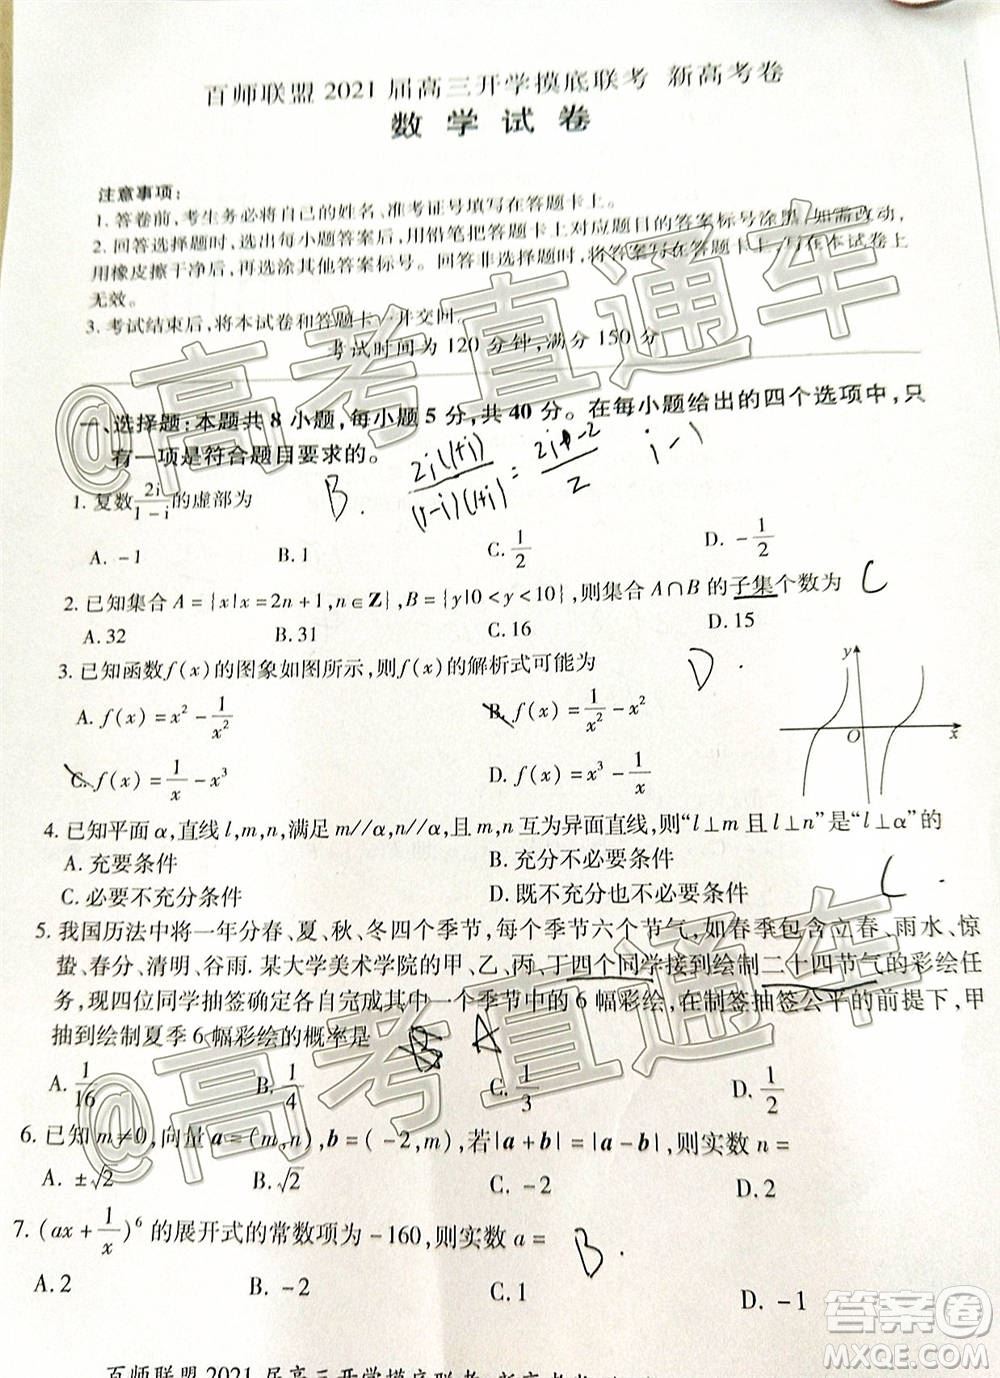 百师联盟2021届高三开学摸底联考 新高考卷
数学试卷
注意事项:
1. 答卷前,考生务必将自己的姓名、准考证号填写在答题卡上。
2. 回答选择题时,选出每小题答案后,用铅笔把答题卡上对应题目的答案标号涂黑,如需改动,
用橡皮擦干净后,再选涂其他答案标号。回答非选择题时,将答案写在答题卡上,写在本试卷上
无效。
3. 考试结束后,将本试卷和答题卡一并交回。
考试时间为120分钟,满分150分
一、选择题:本题共8小题,每小题5分,共40分。在每小题给出的四个选项中,只
有一项是符合题目要求的。
B. 2i(1+i)/(1-i)(1+i) = 2i+-2/2 i-1
1. 复数2i/(1-i)的虚部为
A. -1 B. 1 C. 1/2 D. -1/2
2. 已知集合A={x|x=2n+1,n∈Z},B={y|0<y<10},则集合A∩B的子集个数为 C
A. 32 B. 31 C. 16 D. 15
3. 已知函数f(x)的图象如图所示,则f(x)的解析式可能为 D.
A. f(x)=x²-1/x² B. f(x)=1/x²-x²
C. f(x)=1/x-x³ D. f(x)=x³-1/x
y
O
x
4. 已知平面α,直线l,m,n,满足m//α,n//α,且m,n互为异面直线,则“l⊥m且l⊥n”是“l⊥α”的
A. 充要条件 B. 充分不必要条件
C. 必要不充分条件 D. 既不充分也不必要条件 C.
5. 我国历法中将一年分春、夏、秋、冬四个季节,每个季节六个节气,如春季包含立春、雨水、惊
蛰、春分、清明、谷雨. 某大学美术学院的甲、乙、丙、丁四个同学接到绘制二十四节气的彩绘任
务,现四位同学抽签确定各自完成其中一个季节中的6幅彩绘,在制签抽签公平的前提下,甲
抽到绘制夏季6幅彩绘的概率是 B A
A. 1/16 B. 1/4 C. 1/3 D. 1/2
6. 已知m≠0,向量a=(m,n),b=(-2,m),若|a+b|=|a-b|,则实数n=
A. ±√2 B. √2 C. -2 D. 2
7. (ax+1/x)⁶的展开式的常数项为-160,则实数a= B.
A. 2 B. -2 C. 1 D. -1
百师联盟2021届高三开学摸底联考 新高考卷
@高考直通车
@高考直通车
答案卷
MXQE.COM